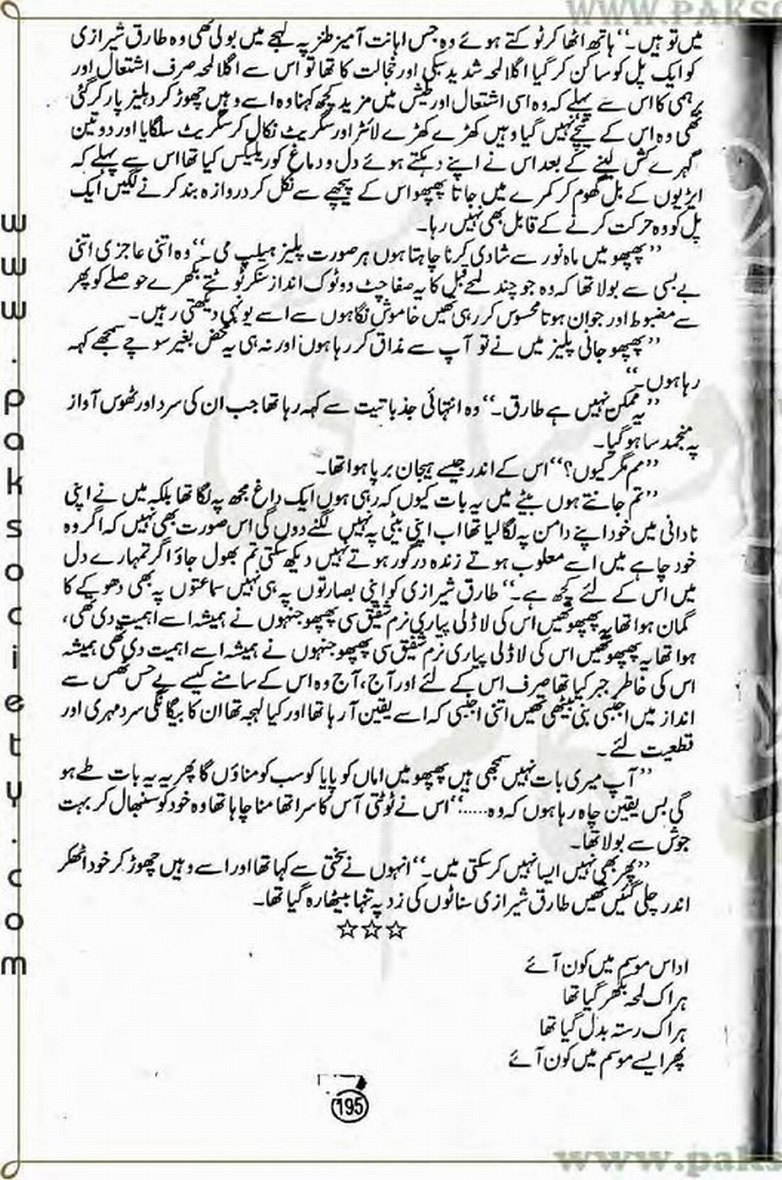 WWW.PAKSO
میں تو ہیں۔‘‘ ہاتھ اٹھا کر ٹوکتے ہوئے وہ جس اہانت آمیز طنزیہ لہجے میں بولی تھی وہ طارق شیرازی
کو ایک پل کو ساکن کر گیا اگلا لمحہ شدید سبکی اور خجالت کا تھا تو اس سے اگلا لمحہ صرف اشتعال اور
برہمی کا اس سے پہلے کہ وہ اسی اشتعال اور طیش میں مزید کچھ کہنا وہ اسے وہیں چھوڑ کر دہلیز پار کر گئی
تھی وہ اس کے پیچھے نہیں گیا وہیں کھڑے کھڑے لائٹر اور سگریٹ نکال کر سگریٹ سلگایا اور دو تین
گہرے کش لینے کے بعد اس نے اپنے دہکتے ہوئے دل و دماغ کو ریلیکس کیا تھا اس سے پہلے کہ
ایڑیوں کے بل گھوم کر کمرے میں جاتا پھپھو اس کے پیچھے سے نکل کر دروازہ بند کرنے لگیں ایک
پل کو وہ حرکت کرنے کے قابل بھی نہیں رہا۔
’’پھپھو میں ماہ نور سے شادی کرنا چاہتا ہوں ہر صورت پلیز ہیلپ می۔‘‘ وہ اتنی عاجزی اتنی
بے بسی سے بولا تھا کہ وہ جو چند لمحے قبل کا یہ صفا چٹ دو ٹوک انداز سنکر ٹوٹتے بکھرے حوصلے کو پھر
سے مضبوط اور جوان ہوتا محسوس کر رہی تھیں خاموش نگاہوں سے اسے یونہی دیکھتی رہیں۔
’’پھپھو جانی پلیز میں نے تو آپ سے مذاق کر رہا ہوں اور نہ ہی یہ محض بغیر سوچے سمجھے کہہ
رہا ہوں۔‘‘
’’یہ ممکن نہیں ہے طارق۔‘‘ وہ انتہائی جذباتیت سے کہہ رہا تھا جب ان کی سرد اور ٹھوس آواز
پہ منجمد سا ہو گیا۔
’’مم مگر کیوں؟‘‘ اس کے اندر جیسے ہیجان برپا ہوا تھا۔
’’تم جانتے ہوں بیٹے میں یہ بات کیوں کہ رہی ہوں ایک داغ مجھ پہ لگا تھا بلکہ میں نے اپنی
نادانی میں خود اپنے دامن پہ لگا لیا تھا اب اپنی بیٹی پہ نہیں لگنے دوں گی اس صورت بھی نہیں کہ اگر وہ
خود چاہے میں اسے معلوب ہوتے زندہ درگور ہوتے نہیں دیکھ سکتی تم بھول جاؤ اگر تمہارے دل
میں اس کے لئے کچھ ہے۔‘‘ طارق شیرازی کو اپنی بصارتوں پہ ہی نہیں سماعتوں پہ بھی دھوکے کا
گمان ہوا تھا یہ پھپھو تھیں اس کی لاڈلی پیاری نرم شفیق سی پھپھو جنہوں نے ہمیشہ اسے اہمیت دی تھی،
ہوا تھا یہ پھپھو تھیں اس کی لاڈلی پیاری نرم شفیق سی پھپھو جنہوں نے ہمیشہ اسے اہمیت دی تھی ہمیشہ
اس کی خاطر جبر کیا تھا صرف اس کے لئے اور آج، آج وہ اس کے سامنے کیسے بے حس ٹھس سے
انداز میں اجنبی بنی بیٹھی تھیں اتنی اجنبی کہ اسے یقین آ رہا تھا اور کیا لہجہ تھا ان کا بیگانگی سرد مہری اور
قطعیت لئے۔
’’آپ میری بات نہیں سمجھی ہیں پھپھو میں اماں کو پاپا کو سب کو مناؤں گا پھر یہ یہ بات طے ہو
گی بس یقین چاہ رہا ہوں کہ وہ.....‘‘ اس نے ٹوٹتی آس کا سرا تھامنا چاہا تھا وہ خود کو سنبھال کر بہت
جوش سے بولا تھا۔
’’پھر بھی نہیں ایسا نہیں کر سکتی میں۔‘‘ انہوں نے سختی سے کہا تھا اور اسے وہیں چھوڑ کر خود اٹھکر
اندر چلی گئیں تھیں طارق شیرازی سناٹوں کی زد پہ تنہا بیٹھا رہ گیا تھا۔
☆☆☆
اداس موسم میں کون آئے
ہر اک لمحہ بکھر گیا تھا
ہر اک رستہ بدل گیا تھا
پھر ایسے موسم میں کون آئے
195
www.paksociety.com
www.paks